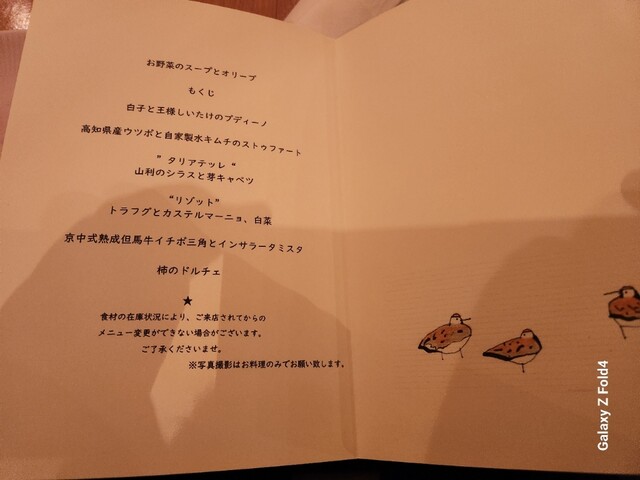 お野菜のスープとオリーブ
もくじ
白子と王様しいたけのブディーノ
高知県産ウツボと自家製水キムチのストゥファート
" タリアテッレ "
山利のシラスと芽キャベツ
"リゾット"
トラフグとカステルマーニョ、白菜
京中式熟成但馬牛イチボ三角とインサラータミスタ
柿のドルチェ
★
食材の在庫状況により、ご来店されてからの
メニュー変更ができない場合がございます。
ご了承くださいませ。
※写真撮影はお料理のみでお願い致します。
Galaxy Z Fold4